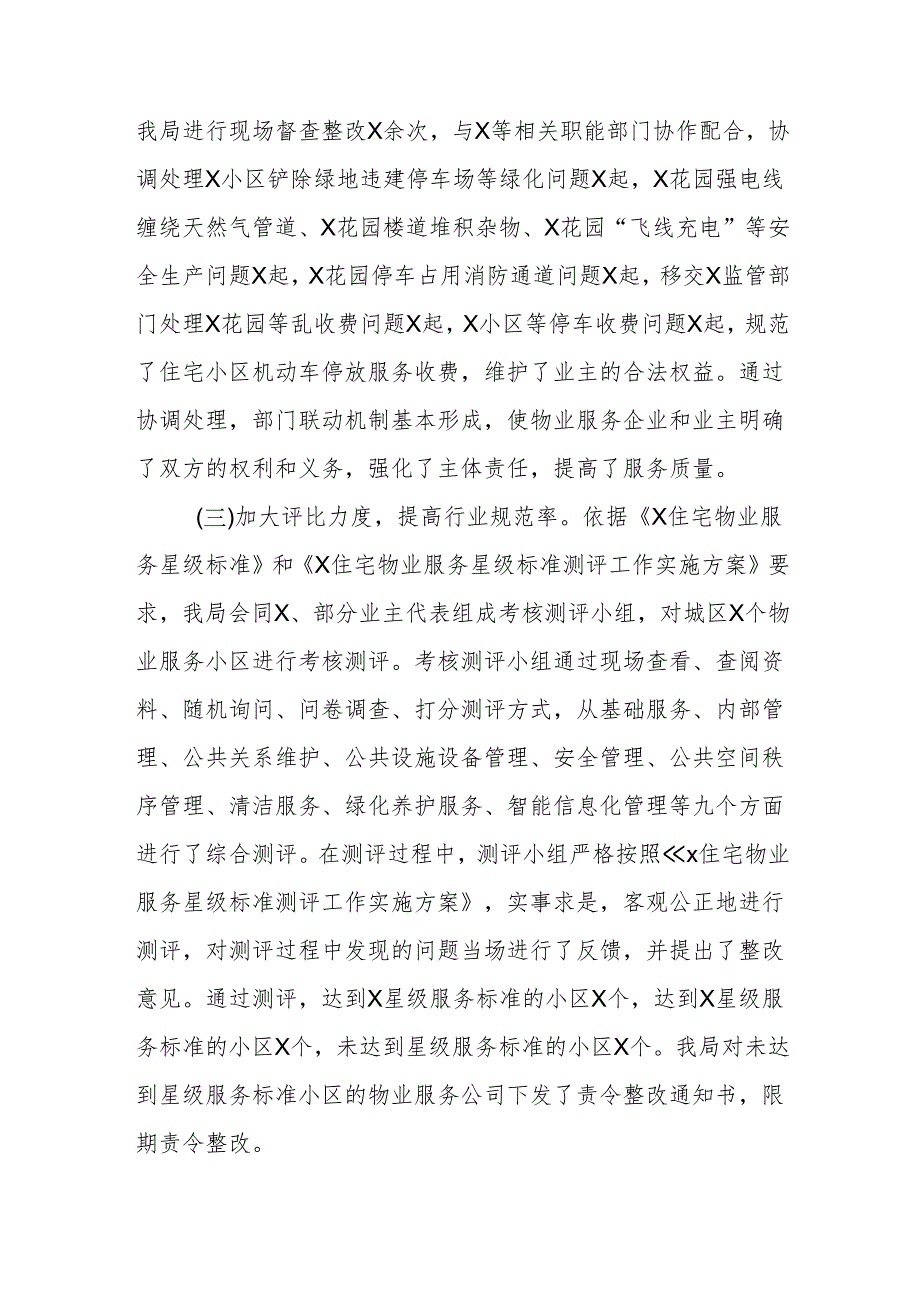 我局进行现场督查整改X余次，与X等相关职能部门协作配合，协
调处理X小区铲除绿地违建停车场等绿化问题X起，X花园强电线
缠绕天然气管道、X花园楼道堆积杂物、X花园“飞线充电”等安
全生产问题X起，X花园停车占用消防通道问题X起，移交X监管部
门处理X花园等乱收费问题X起，X小区等停车收费问题X起，规范
了住宅小区机动车停放服务收费，维护了业主的合法权益。通过
协调处理，部门联动机制基本形成，使物业服务企业和业主明确
了双方的权利和义务，强化了主体责任，提高了服务质量。
(三)加大评比力度，提高行业规范率。依据《X住宅物业服
务星级标准》和《X住宅物业服务星级标准测评工作实施方案》要
求，我局会同X、部分业主代表组成考核测评小组，对城区X个物
业服务小区进行考核测评。考核测评小组通过现场查看、查阅资
料、随机询问、问卷调查、打分测评方式，从基础服务、内部管
理、公共关系维护、公共设施设备管理、安全管理、公共空间秩
序管理、清洁服务、绿化养护服务、智能信息化管理等九个方面
进行了综合测评。在测评过程中，测评小组严格按照≪x住宅物业
服务星级标准测评工作实施方案》，实事求是，客观公正地进行
测评，对测评过程中发现的问题当场进行了反馈，并提出了整改
意见。通过测评，达到X星级服务标准的小区X个，达到X星级服
务标准的小区X个，未达到星级服务标准的小区X个。我局对未达
到星级服务标准小区的物业服务公司下发了责令整改通知书，限
期责令整改。